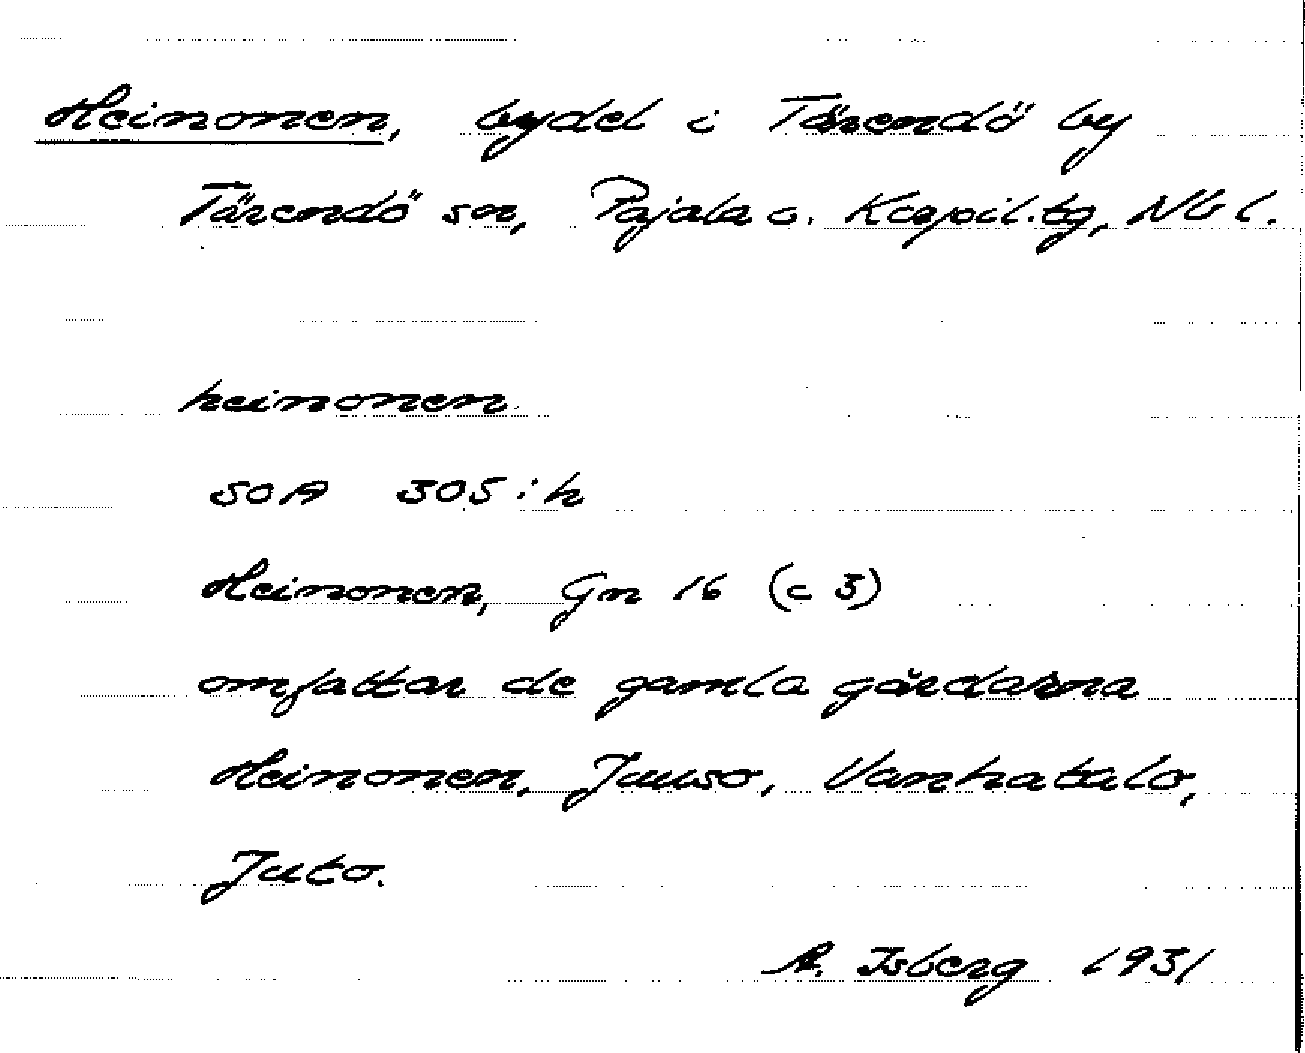 Heinonen, bydel i Tärendö by
Tärendö sn, Pajala o. Korpil. tg, Nb l.
heinonen
SOA 305:h
Heinonen, Gn 16 (c 3)
omfattar de gamla gårdarna
Heinonen, Juuso, Vanhatalo,
Juto.
A. Isberg 1931